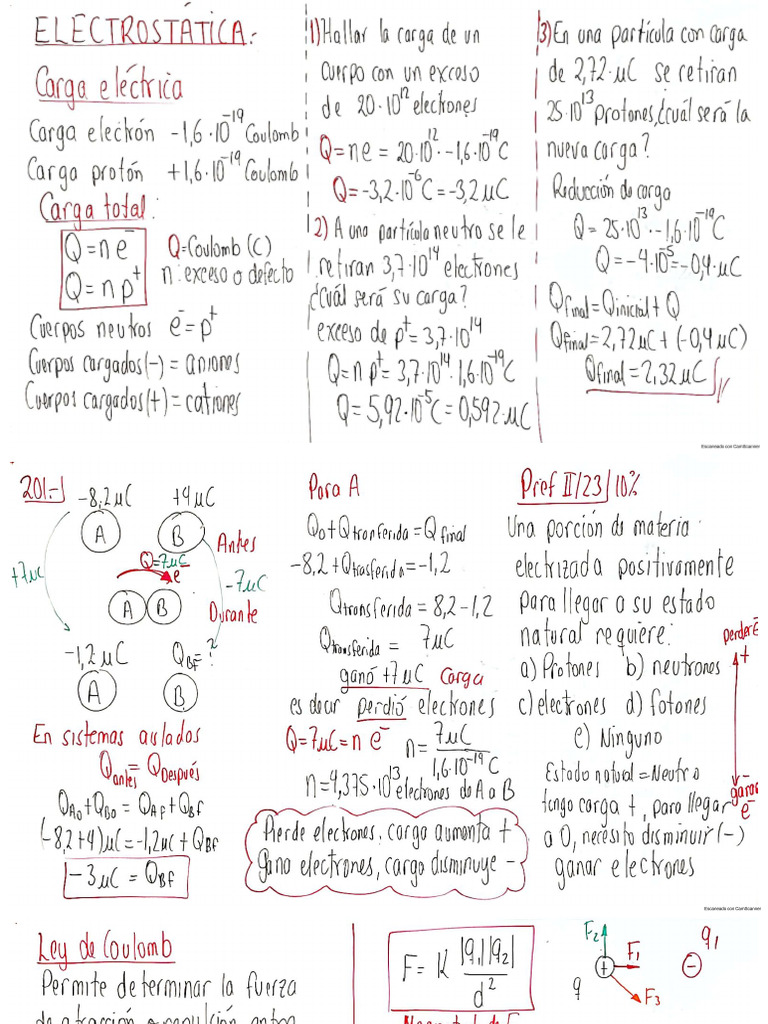 ELECTROSTÁTICA.-
Carga eléctrica
Carga electrón -1,6·10⁻¹⁹ Coulomb
Carga protón +1,6·10⁻¹⁹ Coulomb
Carga total:
Q = n e⁻
Q = n p⁺
Q = Coulomb (C)
n: exceso o defecto
Cuerpos neutros e⁻ = p⁺
Cuerpos cargados (-) = aniones
Cuerpos cargados (+) = cationes
1) Hallar la carga de un
cuerpo con un exceso
de 20·10¹² electrones
Q = ne = 20·10¹²·-1,6·10⁻¹⁹C
Q = -3,2·10⁻⁶C = -3,2 μC
2) A una partícula neutro se le
retiran 3,7·10¹⁴ electrones
¿Cuál será su carga?
exceso de p⁺ = 3,7·10¹⁴
Q = n p⁺ = 3,7·10¹⁴·1,6·10⁻¹⁹C
Q = 5,92·10⁻⁵C = 0,592·μC
3) En una partícula con carga
de 2,72·μC se retiran
25·10¹³ protones, ¿cuál será la
nueva carga?
Reducción de carga
Q = 25·10¹³·-1,6·10⁻¹⁹C
Q = -4·10⁻⁵ = -0,4·μC
Qfinal = Qinicial + Q
Qfinal = 2,72μC + (-0,4μC)
Qfinal = 2,32μC
Escaneado con CamScanner
201.-
-8,2μC +4μC
A B
Antes
Q=7μC
e⁻
+7μC
-7μC
A B
Durante
-1,2μC QBF = ?
A B
En sistemas aislados
Qantes = QDespués
QAo + QBo = QAF + QBF
(-8,2+4)μC = -1,2μC + QBF
-3μC = QBF
Para A
Qo + Qtranferida = Qfinal
-8,2 + Qtrasferida = -1,2
Qtransferida = 8,2 - 1,2
Qtransferida = 7μC
ganó +7μC Carga
es decir perdió electrones
Q = 7μC = n e⁻ n = 7μC / 1,6·10⁻¹⁹C
n = 4,375·10¹³ electrones de A a B
Pierde electrones, carga aumenta +
Gana electrones, carga disminuye -
Pref II/23/10%
Una porción de materia
electrizada positivamente
para llegar a su estado
natural requiere:
a) Protones b) neutrones
c) electrones d) fotones
e) Ninguno
Estado natural = Neutro
tengo carga +, para llegar
a 0, necesito disminuir (-)
ganar electrones
perder e⁻
+
-
ganar
e⁻
Escaneado con CamScanner
Ley de Coulomb
Permite determinar la fuerza
de atracción o repulsión entre
F = K |q₁||q₂| / d²
F₂
F₁
F₃
+
q
-
q₁